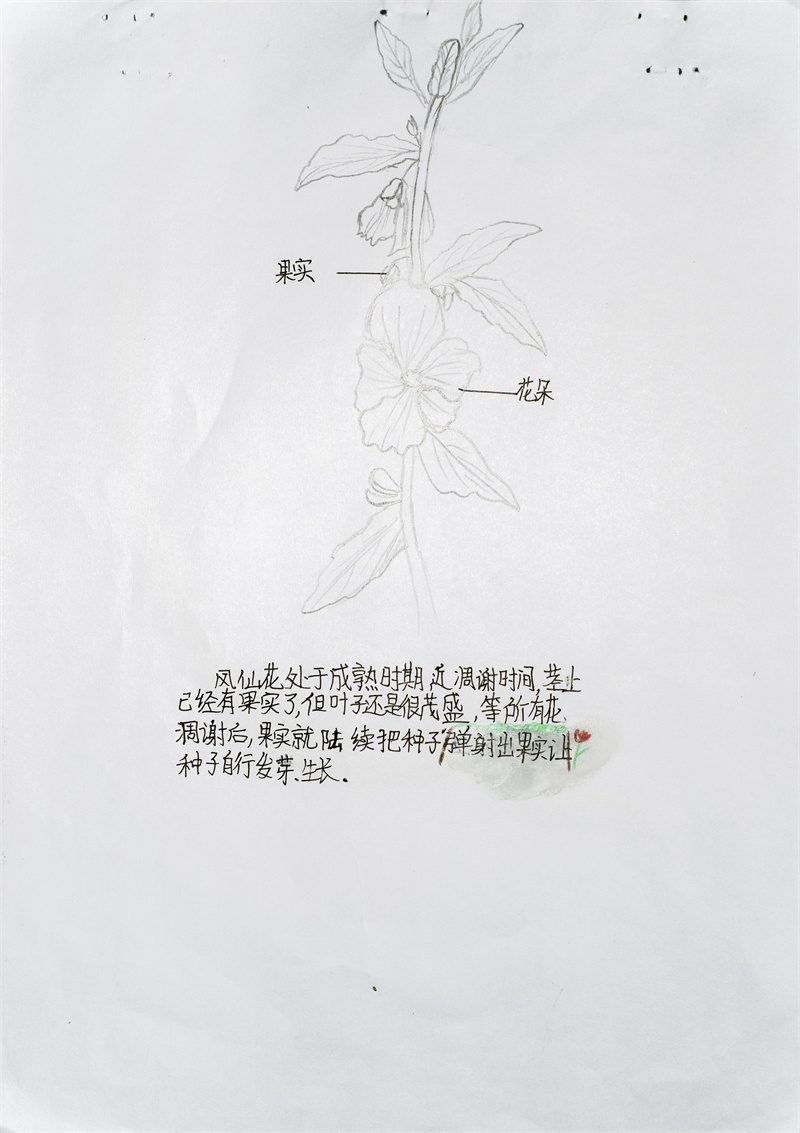 果实
花朵
凤仙花处于成熟时期,近凋谢时间,茎上
已经有果实了,但叶子还是很茂盛,等所有花
凋谢后,果实就陆续把种子"弹射出果实让
种子自行发芽、生长.